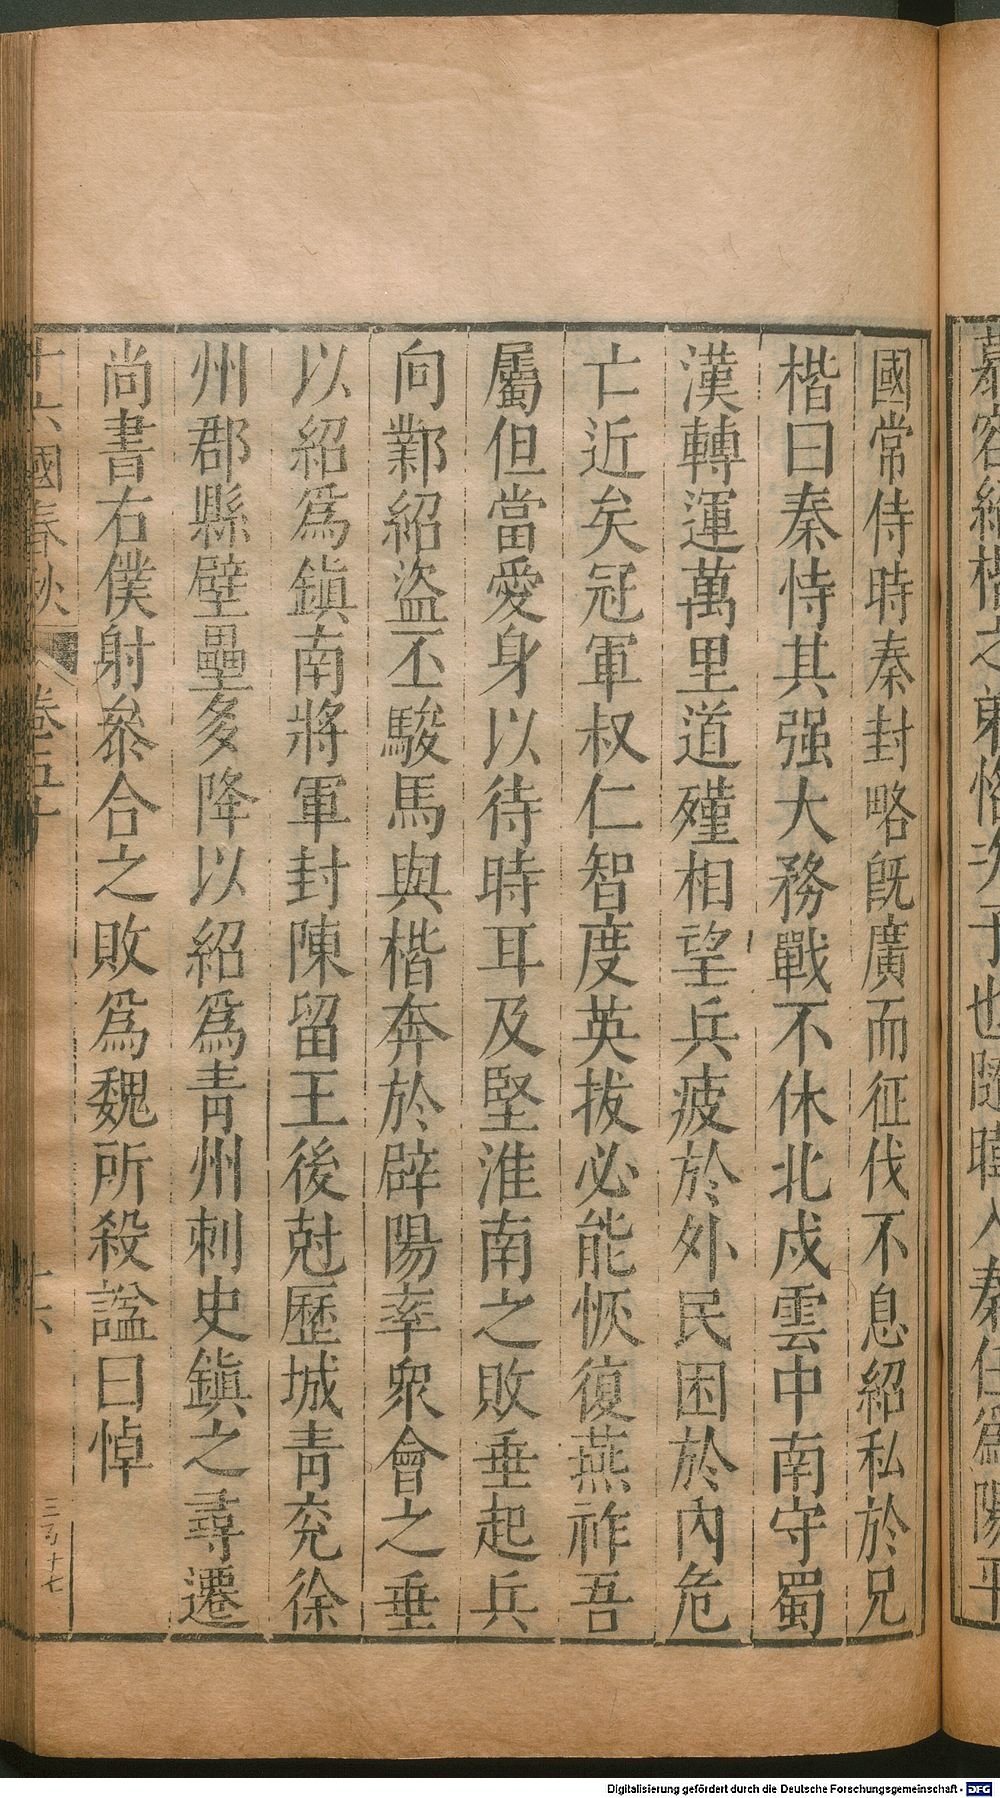 慕容紹楷之弟恪次子也隨暐入秦仕爲陽平
國常侍時秦封略旣廣而征伐不息紹私於兄
楷曰秦恃其强大務戰不休北戍雲中南守蜀
漢轉運萬里道殣相望兵疲於外民困於內危
亡近矣冠軍叔仁智度英拔必能恢復燕祚吾
屬但當愛身以待時耳及堅淮南之敗垂起兵
向鄴紹盜丕駿馬與楷奔於辟陽率衆會之垂
以紹爲鎭南將軍封陳留王後尅歷城靑兗徐
州郡縣壁壘多降以紹爲靑州刺史鎭之尋遷
尚書右僕射叅合之敗爲魏所殺諡曰悼
十六國春秋 卷五十 十六 三百十七
Digitalisierung gefördert durch die Deutsche Forschungsgemeinschaft - DFG